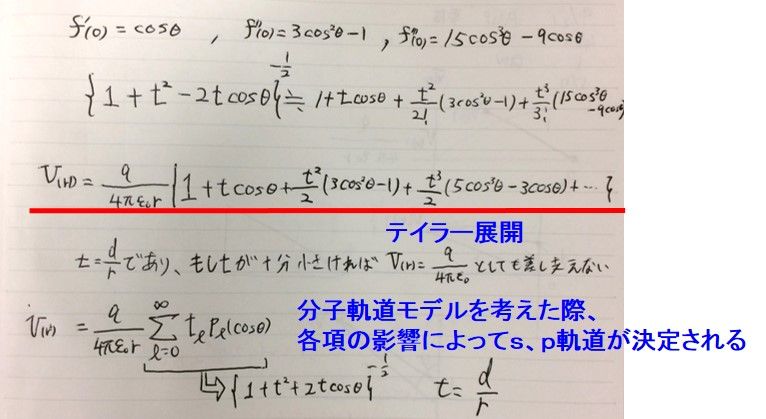 f'(0) = cosθ , f''(0) = 3cos²θ-1 , f'''(0) = 15cos³θ - 9cosθ
{1+t²-2tcosθ}^{-1/2} ≒ 1+tcosθ + t²/2!(3cos²θ-1) + t³/3!(15cos³θ-9cosθ)
V(r) = q/4πε₀r {1+tcosθ+t²/2(3cos²θ-1)+t³/2(5cos³θ-3cosθ)+…}
テイラー展開
t=d/rであり、もしtが十分小さければ V(r)=q/4πε₀ としても差し支えない
V(r) = q/4πε₀r Σ_{ℓ=0}^{∞} t_ℓ P_ℓ(cosθ)
分子軌道モデルを考えた際、
各項の影響によってs、p軌道が決定される
{1+t²+2tcosθ}^{-1/2} t=d/r